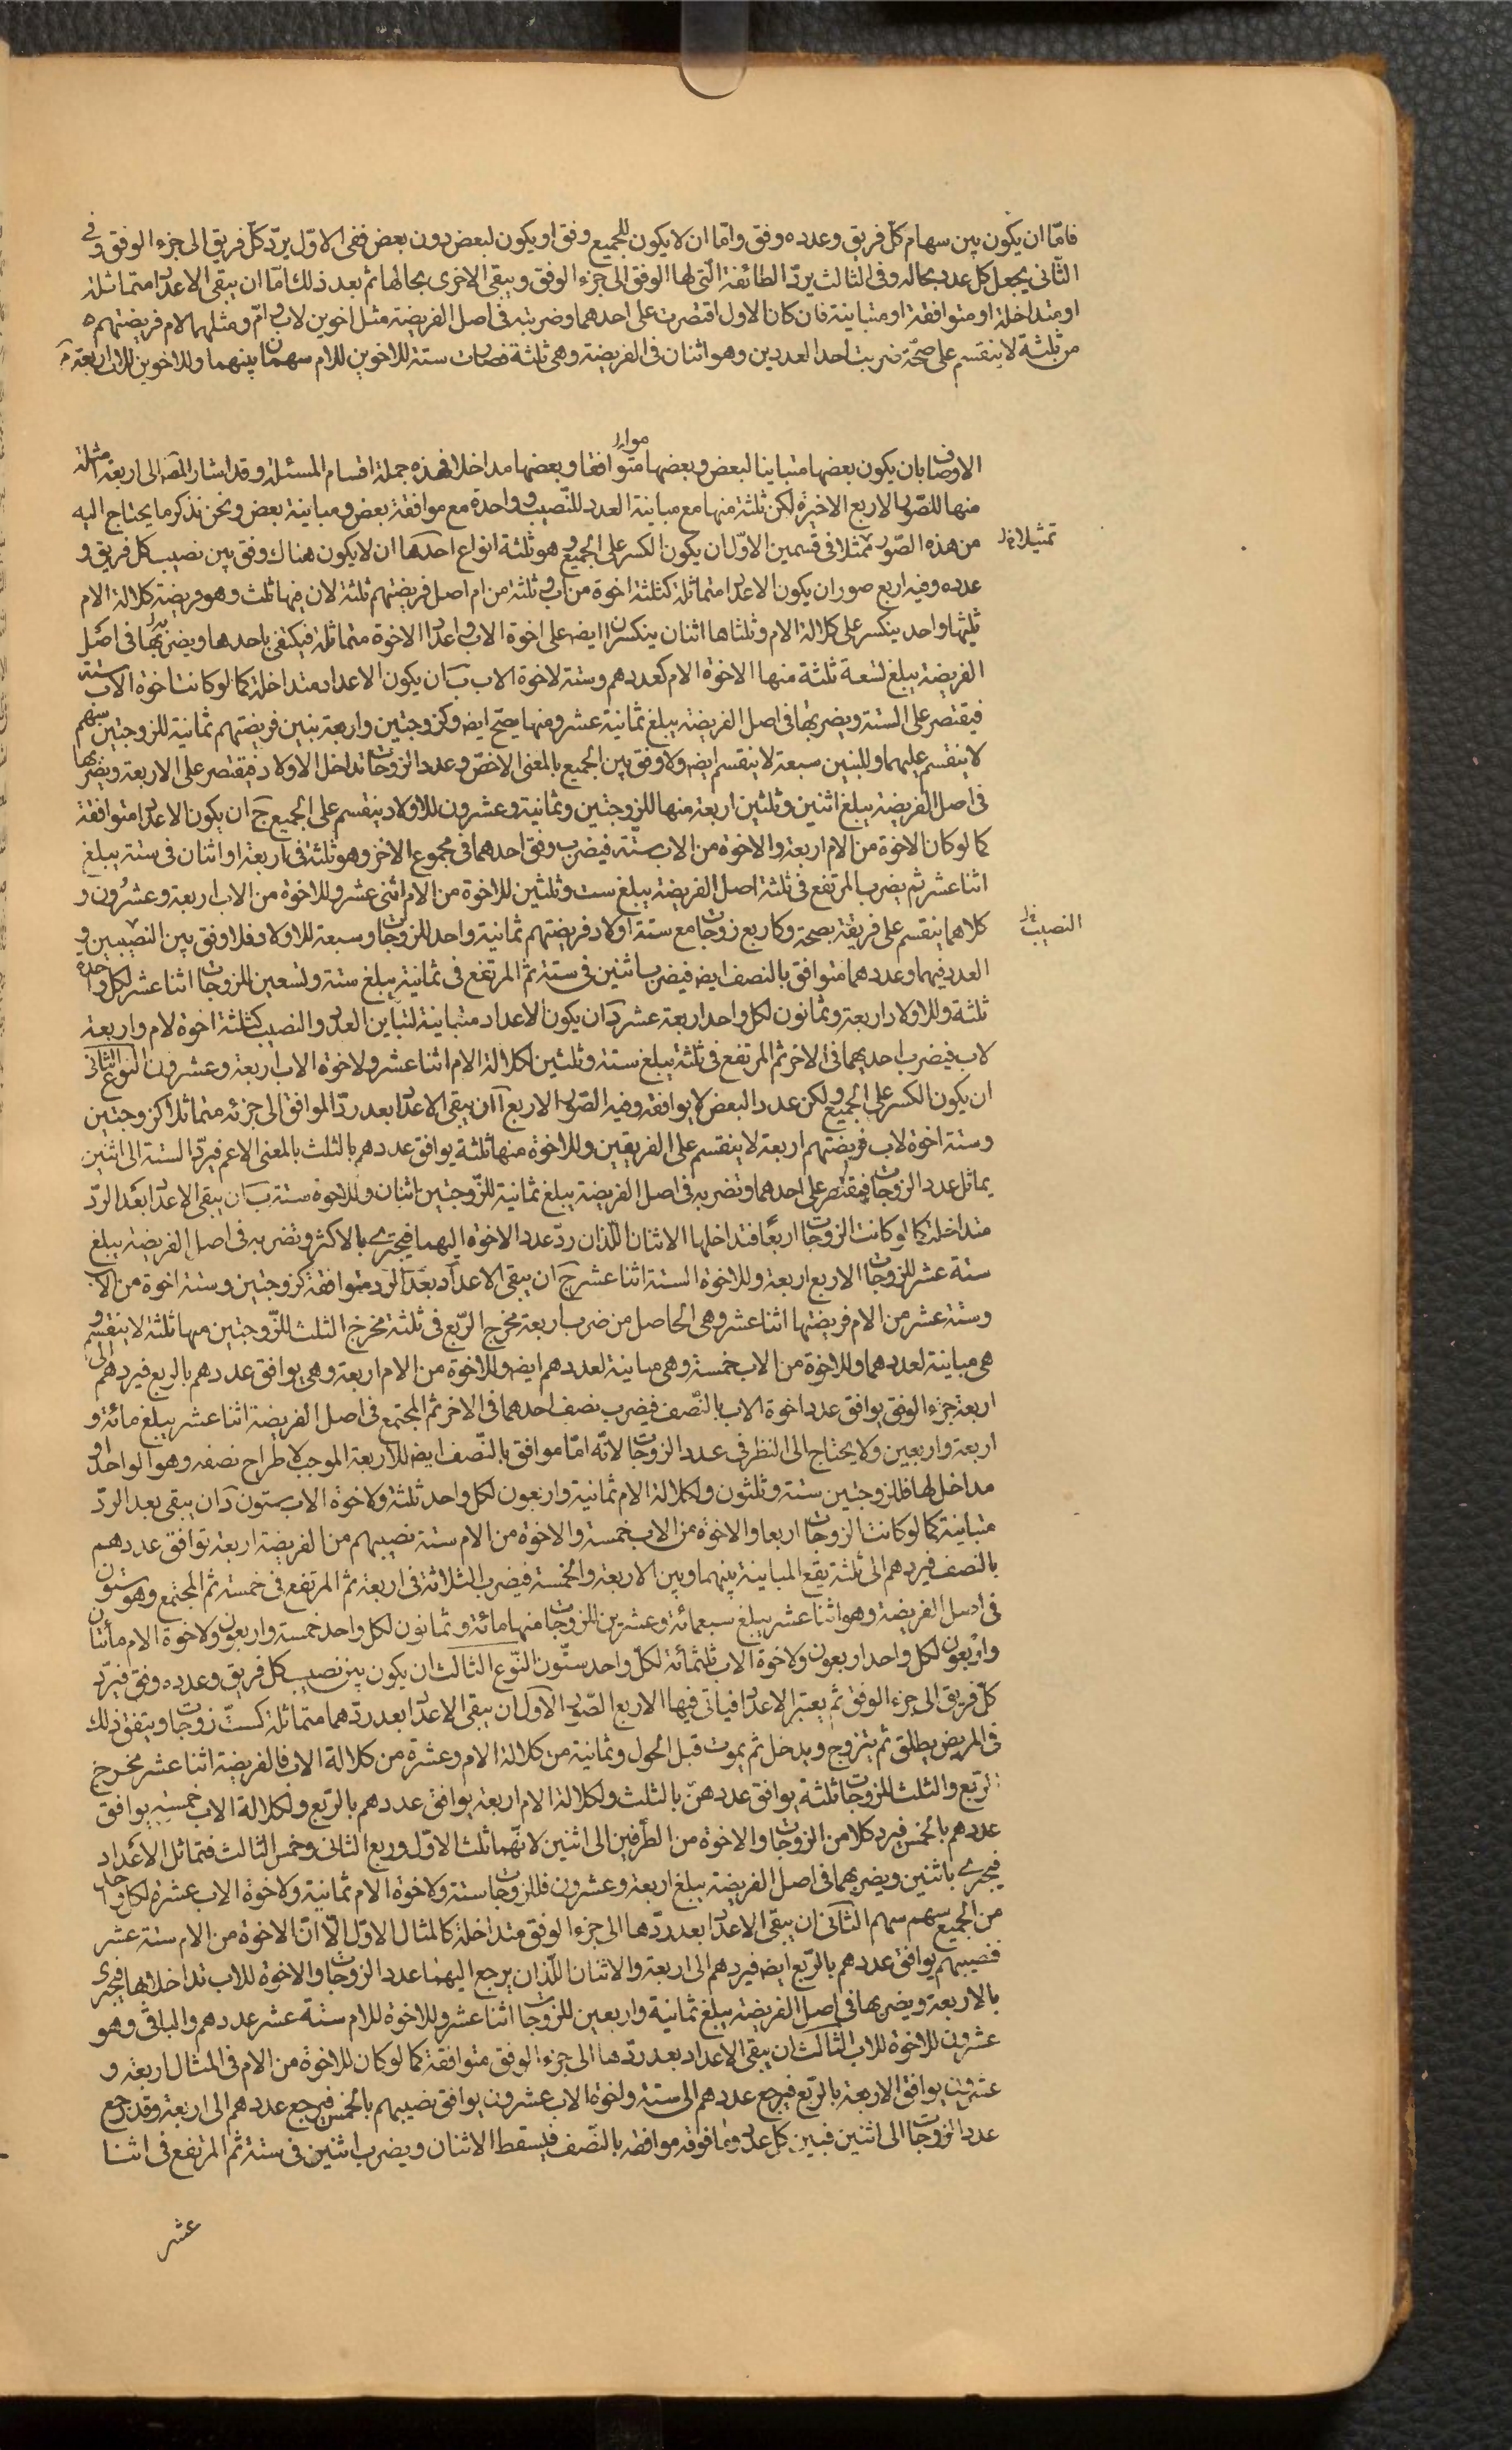 فامّا ان يكون بين سهام كلّ فريق وعدده وفق وامّا ان لا يكون للجميع وفق او يكون لبعض دون بعض ففى الاوّل يردّ كلّ فريق الى جزء الوفق وفى
الثّانى يجعل كل عدد بحاله وفى الثالث يردّ الطائفة الّتى لها الوفق الى جزء الوفق ويبقى الاخرى بحالها ثم بعد ذلك امّا ان يبقى الاعداد متماثلة
او متداخلة او متوافقة او متباينة فان كان الاول اقتصرت على احدهما وضربته فى اصل الفريضة مثل اخوين لاب وامّ ومثلهما لام فريضتهم
من ثلثة لا ينقسم على صحّة ضربت احد العددين وهو اثنان فى الفريضة وهى ثلثة فصارت ستة للاخوين للام سهمان بينهما وللاخوين للاب اربعة
الاوصاف بان يكون بعضها متباينا لبعض وبعضها متوافقا وبعضها مداخلا فهذه جملة اقسام المسئلة وقد اشار المصّ الى اربعة امثلة
منها للصّور الاربع الاخيرة لكن ثلثة منها مع مباينة العدد للنّصيب وواحدة مع موافقة بعض ومباينة بعض ونحن نذكر ما يحتاج اليه
تمثيلا
من هذه الصّور ممثلا فى قسمين الاوّل ان يكون الكسر على الجميع وهو ثلثة انواع احدها ان لا يكون هناك وفق بين نصيب كل فريق و
عدده وفيه اربع صور ان يكون الاعداد متماثلة كثلثة اخوة من اب وثلثة من ام اصل فريضتهم ثلثة لان فيها ثلث وهو فريضة كلالة الام
ثلثها واحد ينكسر على كلالة الام وثلثاها اثنان ينكسران ايضا على اخوة الاب واعداد الاخوة متماثلة فيكتفى باحدها ويضربها فى اصل
الفريضة يبلغ تسعة ثلثة منها لاخوة الام كعددهم وستة لاخوة الاب ب ان يكون الاعداد متداخلة كما لو كانت اخوة الاب ستة
فيقتصر على الستة ويضربها فى اصل الفريضة يبلغ ثمانية عشر ومنها يصح ايضا وكزوجتين واربعة بنين فريضتهم ثمانية للزوجتين سهم
لا ينقسم عليهما وللبنين سبعة لا ينقسم ايضا ولا وفق بين الجميع بالمعنى الاخصّ وعدد الزوجات تداخل الاولاد فيقتصر على الاربعة ويضربها
فى اصل الفريضة يبلغ اثنين وثلثين اربعة منها للزوجتين وثمانية وعشرون للاولاد ينقسم على الجميع ج ان يكون الاعداد متوافقة
كما لو كان الاخوة من الام اربعة والاخوة من الاب ستة فيضرب وفق احدهما فى مجموع الاخر وهو ثلثة فى اربعة او اثنان فى ستة يبلغ
اثنا عشر ثم يضرب المرتفع فى ثلثة اصل الفريضة يبلغ ست وثلثين للاخوة من الام اثنى عشر وللاخوة من الاب اربعة وعشرون و
النصيب
كلاهما ينقسم على فريقه بصحة وكاربع زوجات مع ستة اولاد فريضتهم ثمانية واحد للزوجات وسبعة للاولاد فلا وفق بين النصيبين و
العدد فيهما وعددهما متوافق بالنصف ايضا فيضرب اثنين فى ستة ثم المرتفع فى ثمانية يبلغ ستة وتسعين للزوجات اثنا عشر لكل واحدة
ثلثة وللاولاد اربعة وثمانون لكل واحد اربعة عشر د ان يكون الاعداد متباينة لتباين العدد والنصيب كثلثة اخوة لام واربعة
لاب فيضرب احديهما فى الاخر ثم المرتفع فى ثلثة يبلغ ستة وثلثين لكلالة الام اثنا عشر ولاخوة الاب اربعة وعشرون النوع الثانى
ان يكون الكسر على الجميع ولكن عدد البعض لا يوافقه وفيه الصّور الاربع آ ان يبقى الاعداد بعد ردّ الموافق الى جزئه متماثلا كزوجتين
وستة اخوة لاب فريضتهم اربعة لا ينقسم على الفريقين وللاخوة منها ثلثة يوافق عددهم بالثلث بالمعنى الاعم فيردّ الستة الى اثنين
يماثل عدد الزوجات فيقتصر على احدهما وتضربه فى اصل الفريضة يبلغ ثمانية للزّوجتين اثنان وللاخوة ستة ب ان يبقى الاعداد بعد الردّ
متداخلة كما لو كانت الزوجات اربعا فتداخلها الاثنان اللّذان ردّ عدد الاخوة اليهما فيجتزى بالاكثر وتضربه فى اصل الفريضة يبلغ
ستة عشر للزوجات الاربع اربعة وللاخوة الستة اثنا عشر ج ان يبقى الاعداد بعد الرد متوافقة كزوجتين وستة اخوة من الاب
وستة عشر من الام فريضتها اثنا عشر وهى الحاصل من ضرب اربعة مخرج الرّبع فى ثلثة مخرج الثلث للزّوجتين منها ثلثة لا ينقسم و
هى مباينة لعددهما وللاخوة من الاب خمسة وهى مباينة لعددهم ايضا وللاخوة من الام اربعة وهى يوافق عددهم بالربع فيردهم الى
اربعة جزء الوفق يوافق عدد اخوة الاب بالنّصف فيضرب نصف احدهما فى الاخر ثم المجتمع فى اصل الفريضة اثنا عشر يبلغ مائة و
اربعة واربعين ولا يحتاج الى النظر فى عدد الزوجات لانّه امّا موافق بالنّصف ايضا للاربعة الموجب لاطراح نصفه وهو الواحد او
مداخل لها فللزوجتين ستة وثلثون ولكلالة الام ثمانية واربعون لكل واحد ثلثة ولاخوة الاب ستون د ان يبقى بعد الردّ
متباينة كما لو كانت الزوجات اربعا والاخوة من الاب خمسة والاخوة من الام ستة نصيبهم من الفريضة اربعة توافق عددهم
بالنصف فيردهم الى ثلثة يقع المباينة بينهما وبين الاربعة والخمسة فيضرب الثلاثة فى اربعة ثم المرتفع فى خمسة ثم المجتمع وهو ستون
فى اصل الفريضة وهو اثنا عشر يبلغ سبعمائة وعشرين للزوجات منها مائة وثمانون لكل واحد خمسة واربعون ولاخوة الام مأتان
واربعون لكل واحد اربعون ولاخوة الاب ثلثمائة لكلّ واحد ستّون النّوع الثالث ان يكون بين نصيب كل فريق وعدده وفق فيردّ
كلّ فريق الى جزء الوفق ثم يعتبر الاعداد فياتى فيها الاربع الصّور الاول ان يبقى الاعداد بعد ردّهما متماثلة كستّ زوجات ويتفق ذلك
فى المريض يطلق ثم يتزوج ويدخل ثم يموت قبل الحول وثمانية من كلالة الام وعشرة من كلالة الاب فالفريضة اثنا عشر مخرج
الرّبع والثلث للزوجات ثلثة يوافق عددهنّ بالثلث ولكلالة الام اربعة يوافق عددهم بالرّبع ولكلالة الاب خمسة يوافق
عددهم بالخمس فيرد كلا من الزوجات والاخوة من الطّرفين الى اثنين لانّهما ثلث الاوّل وربع الثانى وخمس الثالث فتماثل الاعداد
فيجزى باثنين ويضربهما فى اصل الفريضة يبلغ اربعة وعشرون فللزوجات ستة ولاخوة الام ثمانية ولاخوة الاب عشرة لكل واحد
من الجميع سهم سهم الثّانى ان يبقى الاعداد بعد ردّها الى جزء الوفق متداخلة كالمثال الاوّل الّا انّ الاخوة من الام ستة عشر
فنصيبهم يوافق عددهم بالرّبع ايضا فيردهم الى اربعة والاثنان اللّذان يرجع اليهما عدد الزوجات والاخوة للاب تداخلانها فيجزى
بالاربعة ويضربها فى اصل الفريضة يبلغ ثمانية واربعين للزوجات اثنا عشر وللاخوة للام ستة عشر عددهم والباقى وهو
عشرون للاخوة للاب الثّالث ان يبقى الاعداد بعد ردّها الى جزء الوفق متوافقة كما لو كان للاخوة من الام فى المثال اربعة و
عشرون يوافق الاربعة بالرّبع فيرجع عددهم الى ستة ولخوة الاب عشرون يوافق نصيبهم بالخمس فيرجع عددهم الى اربعة وقد رجع
عدد الزوجات الى اثنين فبين كل عدد وما فوقه موافقة بالنّصف فيسقط الاثنان ويضرب اثنين فى ستة ثم المرتفع فى اثنا
عشر